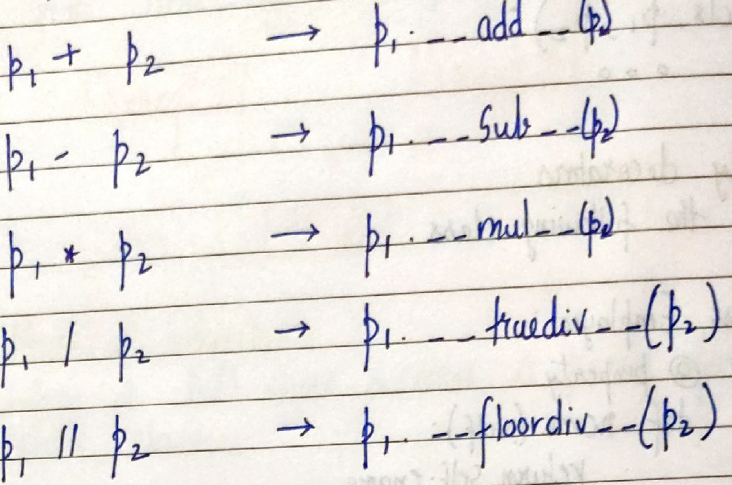 p₁ + p₂ → p₁.__add__(p₂)
p₁ - p₂ → p₁.__sub__(p₂)
p₁ * p₂ → p₁.__mul__(p₂)
p₁ / p₂ → p₁.__truediv__(p₂)
p₁ // p₂ → p₁.__floordiv__(p₂)